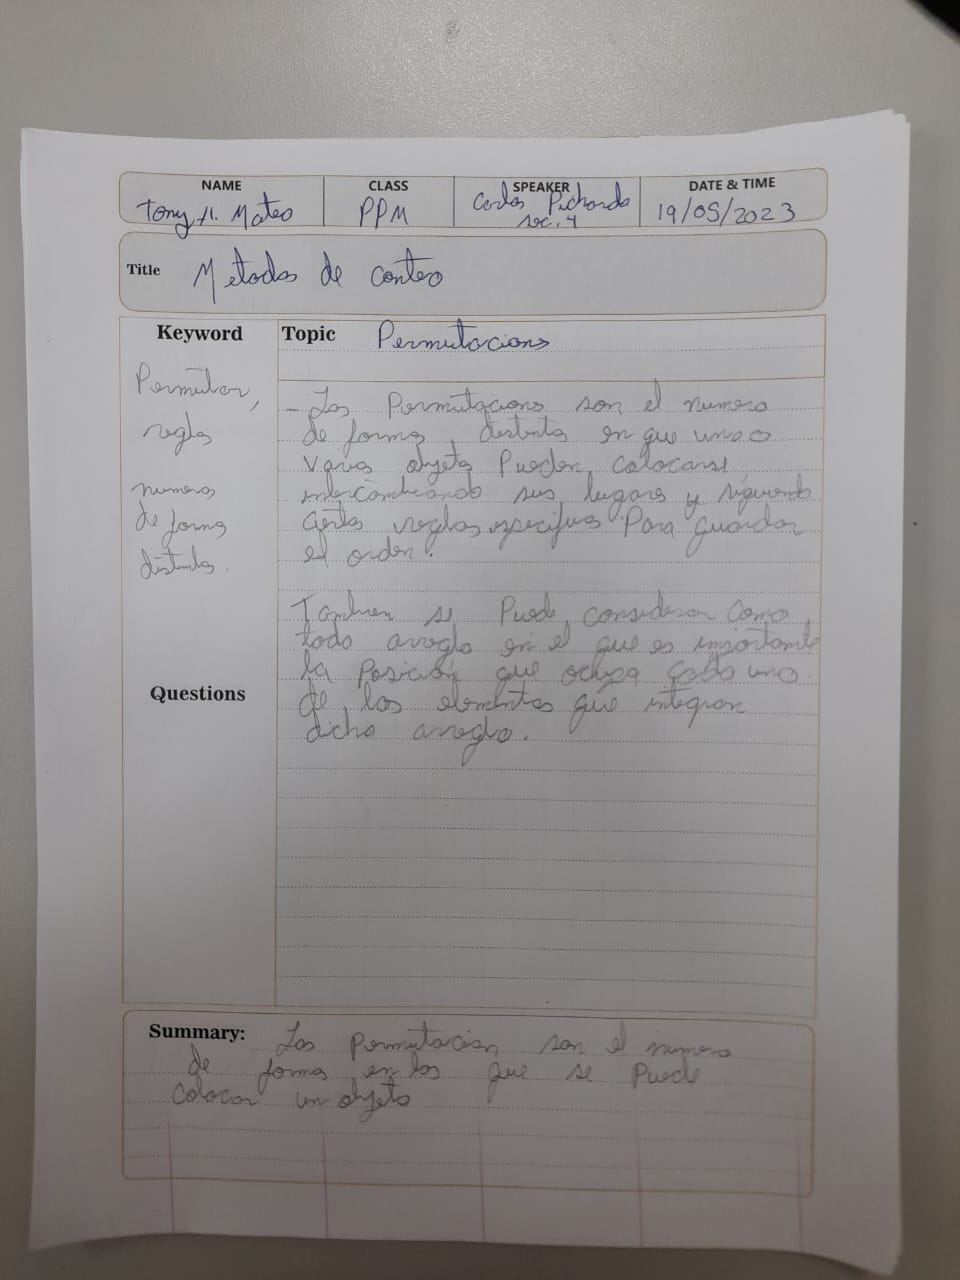 NAME
CLASS
SPEAKER
DATE & TIME
Tony H. Mateo
PPM
Carlos Pichardo
sec. 4
19/05/2023
Title
Metodos de conteo
Keyword
Permutar,
reglas
numeros
de forma
distintas.
Questions
Topic
Permutacions
- Las Permutacions son el numero
de forma, distinta en que uno o
varios objetos Pueden colocarse
intercambiando sus lugares y siguiendo
ciertas reglas especificas Para guardar
el orden.
Tambien se Puede considerar como
todo arreglo en el que es importante
la Posición que ocupa cada uno
de los elementos que integran
dicho arreglo.
Summary:
Las Permutacion son el numero
de forma en las que se Puede
colocar un objeto